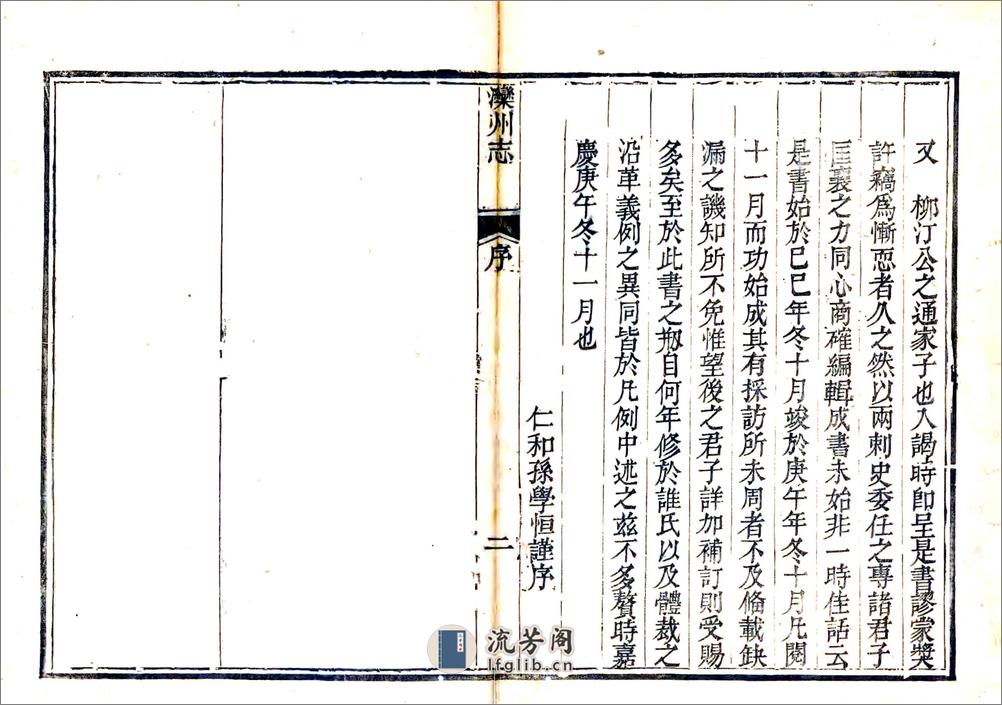 又　柳汀公之通家子也入謁時卽呈是書謬蒙獎
許竊爲慚恧者久之然以兩刺史委任之專諸君子
匡襄之力同心商確編輯成書未始非一時佳話云
是書始於己巳年冬十月竣於庚午年冬十月凡閱
十一月而功始成其有採訪所未周者不及備載缺
漏之譏知所不免惟望後之君子詳加補訂則受賜
多矣至於此書之剏自何年修於誰氏以及體裁之
沿革義例之異同皆於凡例中述之茲不多贅時嘉
慶庚午冬十一月也
仁和孫學恒謹序
灤州志
序
二
流芳阁
lfglib.cn